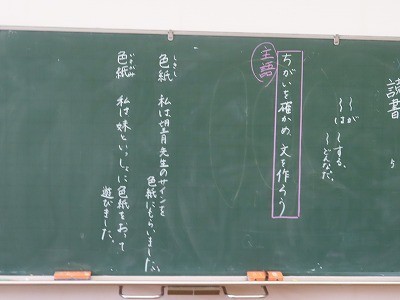 読書
〜が
〜は
〜する。
〜どんなだ。
主語
ちがいを確かめ、文を作ろう
しきし
色紙 私は望月先生のサインを
色紙にもらいました。
いろがみ
色紙 私は妹といっしょに色紙をおって
遊びました。